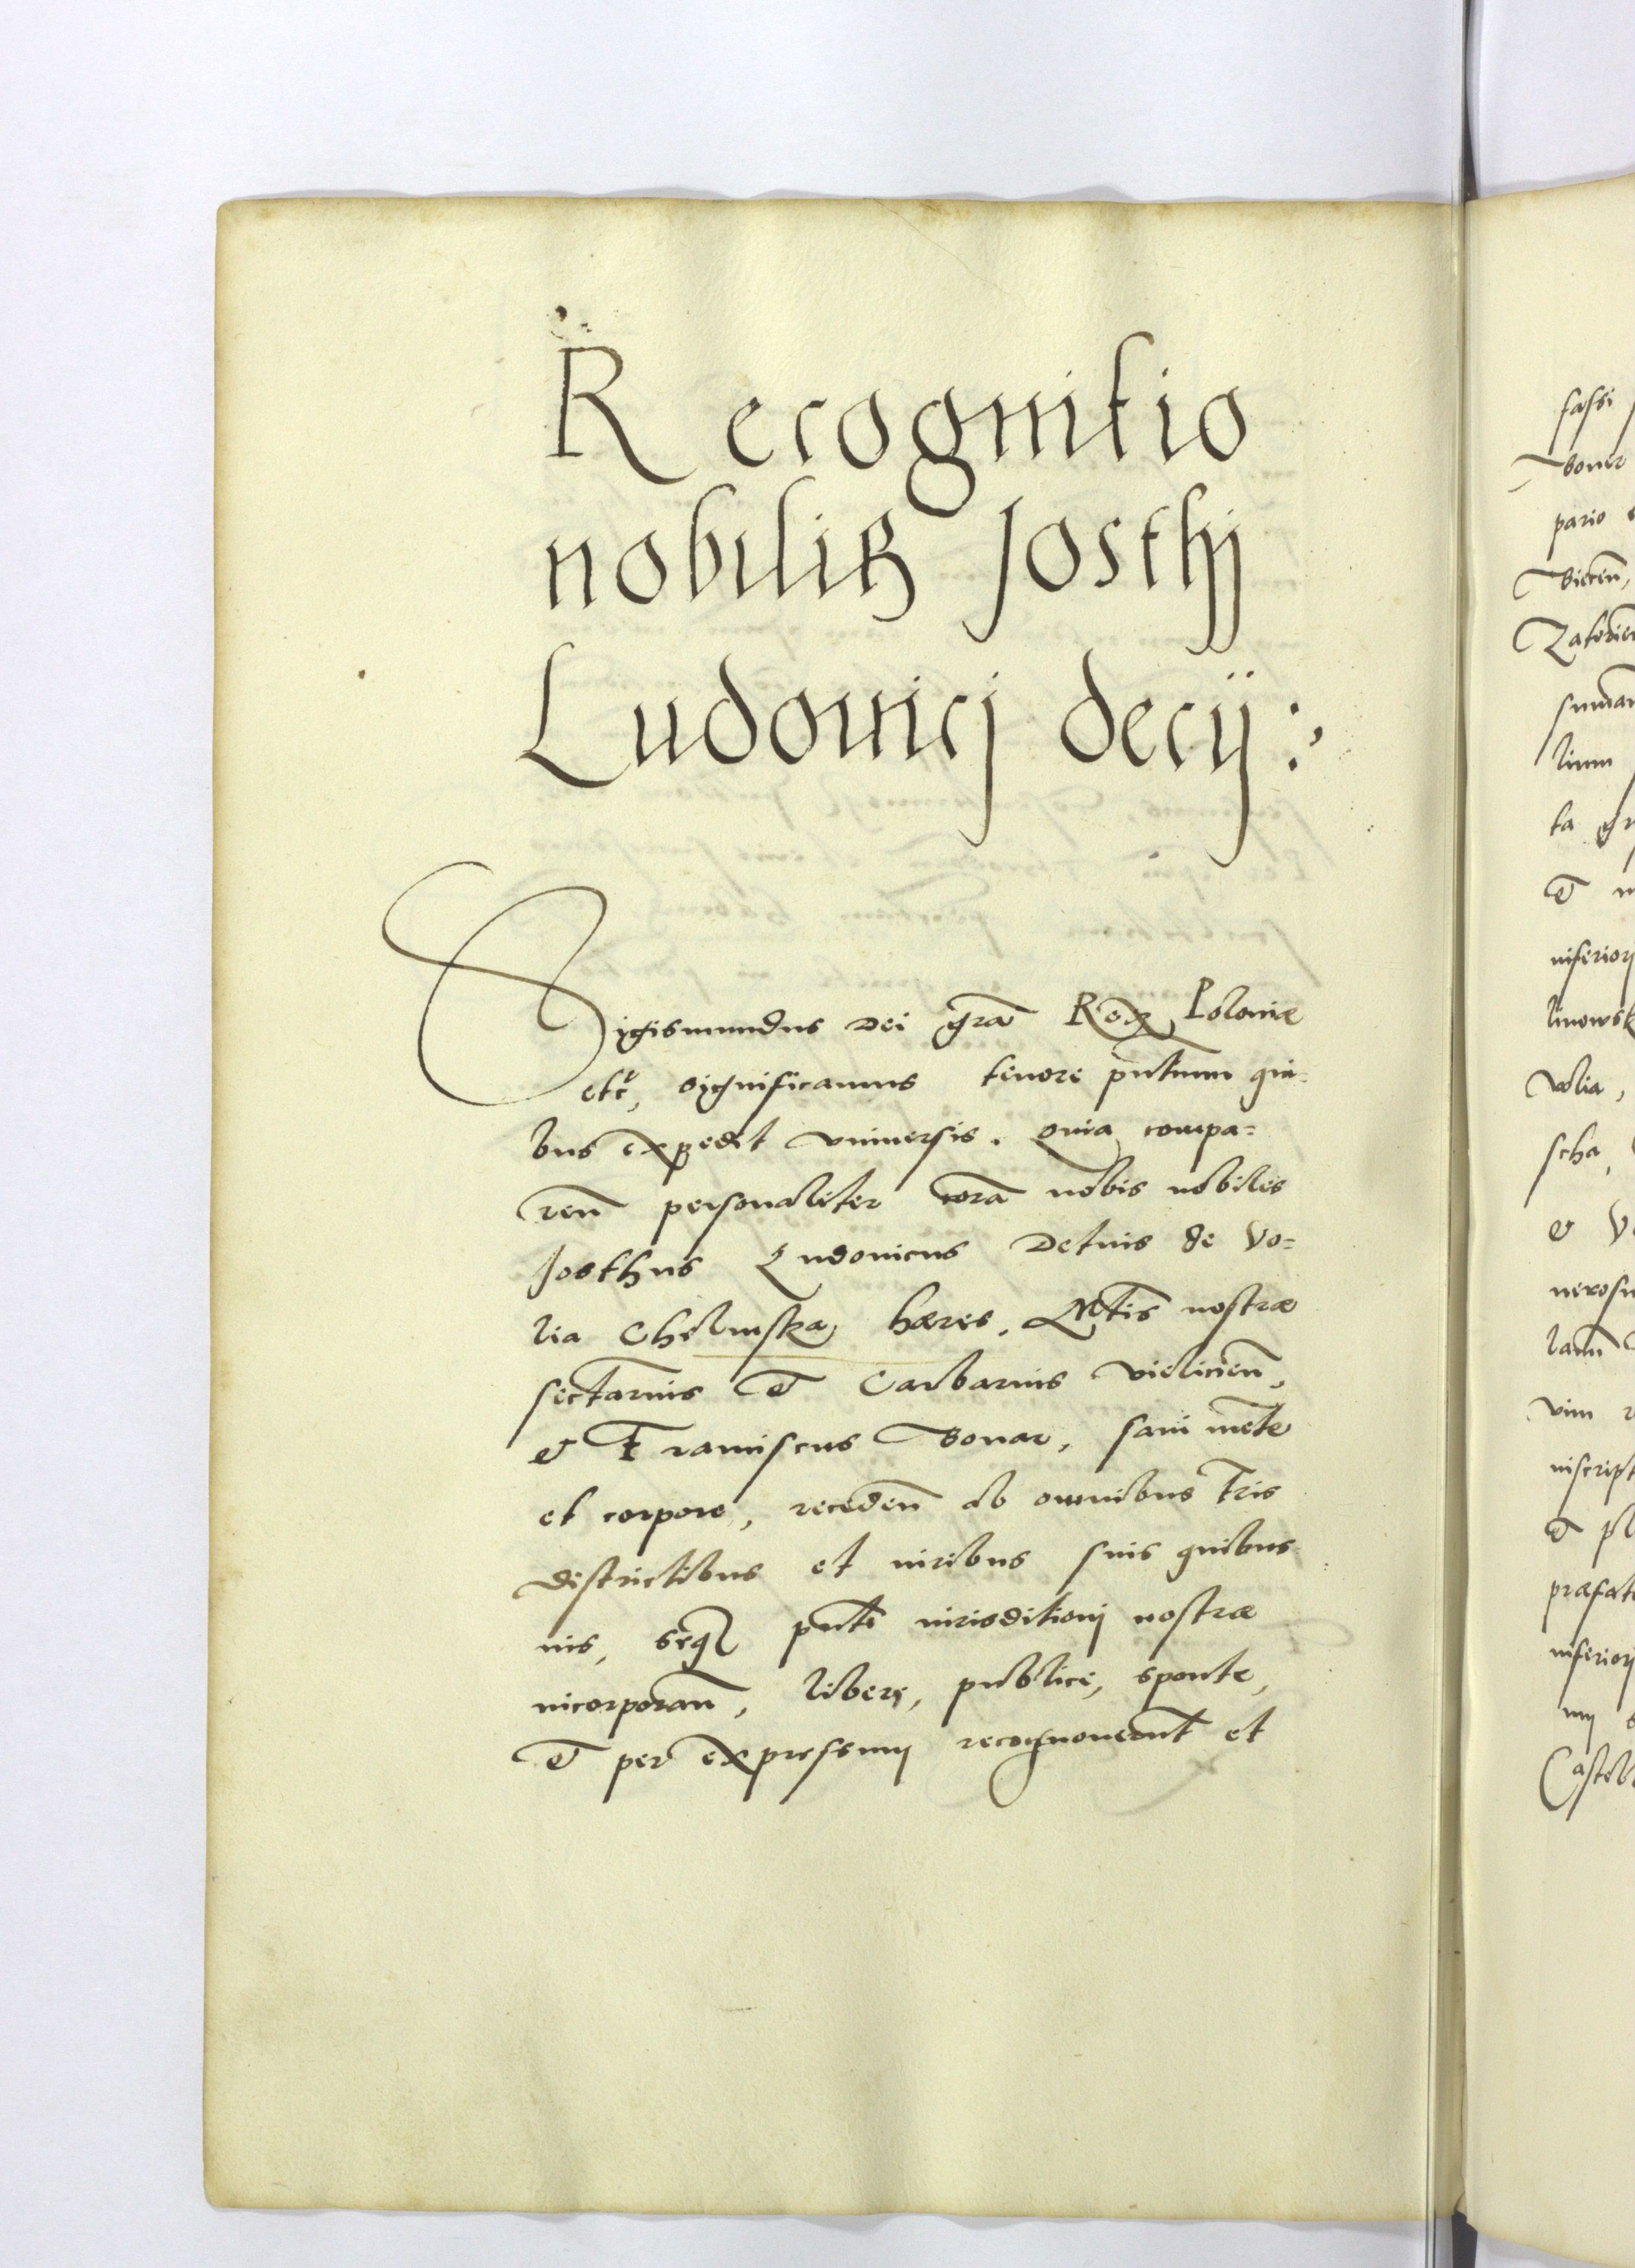 Recognitio
nobiliꝝ Josthij
Ludouicj decij :
Sigismundus Dei grã Rex Poloniæ
etc̃, significamus tenore pñtium qui-
bus expedit vniuersis. Quia compa=
reñ personaliter corã nobis nobiles
Josthus Ludouicus Detius de Vo=
lia Chelmska hæres, Mtis nostræ
sectarius et Carbarius vielicieñ,
et Franciscus Bonar, sani mẽte
et corpore, recedeñ ab omnibus Tris
districtibus et iuribus suis quibus
uis, seq₃ pñti iurisditionj nostræ
incorporañ, libere, publice, sponte,
et per expressum recognouerũt et
fassi
Boner
pario
Biecen,
Zatorien
summam
linm
ta gr
et
inferiorj
linowsk
wolia,
scha,
et Vo
nerosu
lanũ
vim
inscript
et pl
præfat
inferiorj
Castell